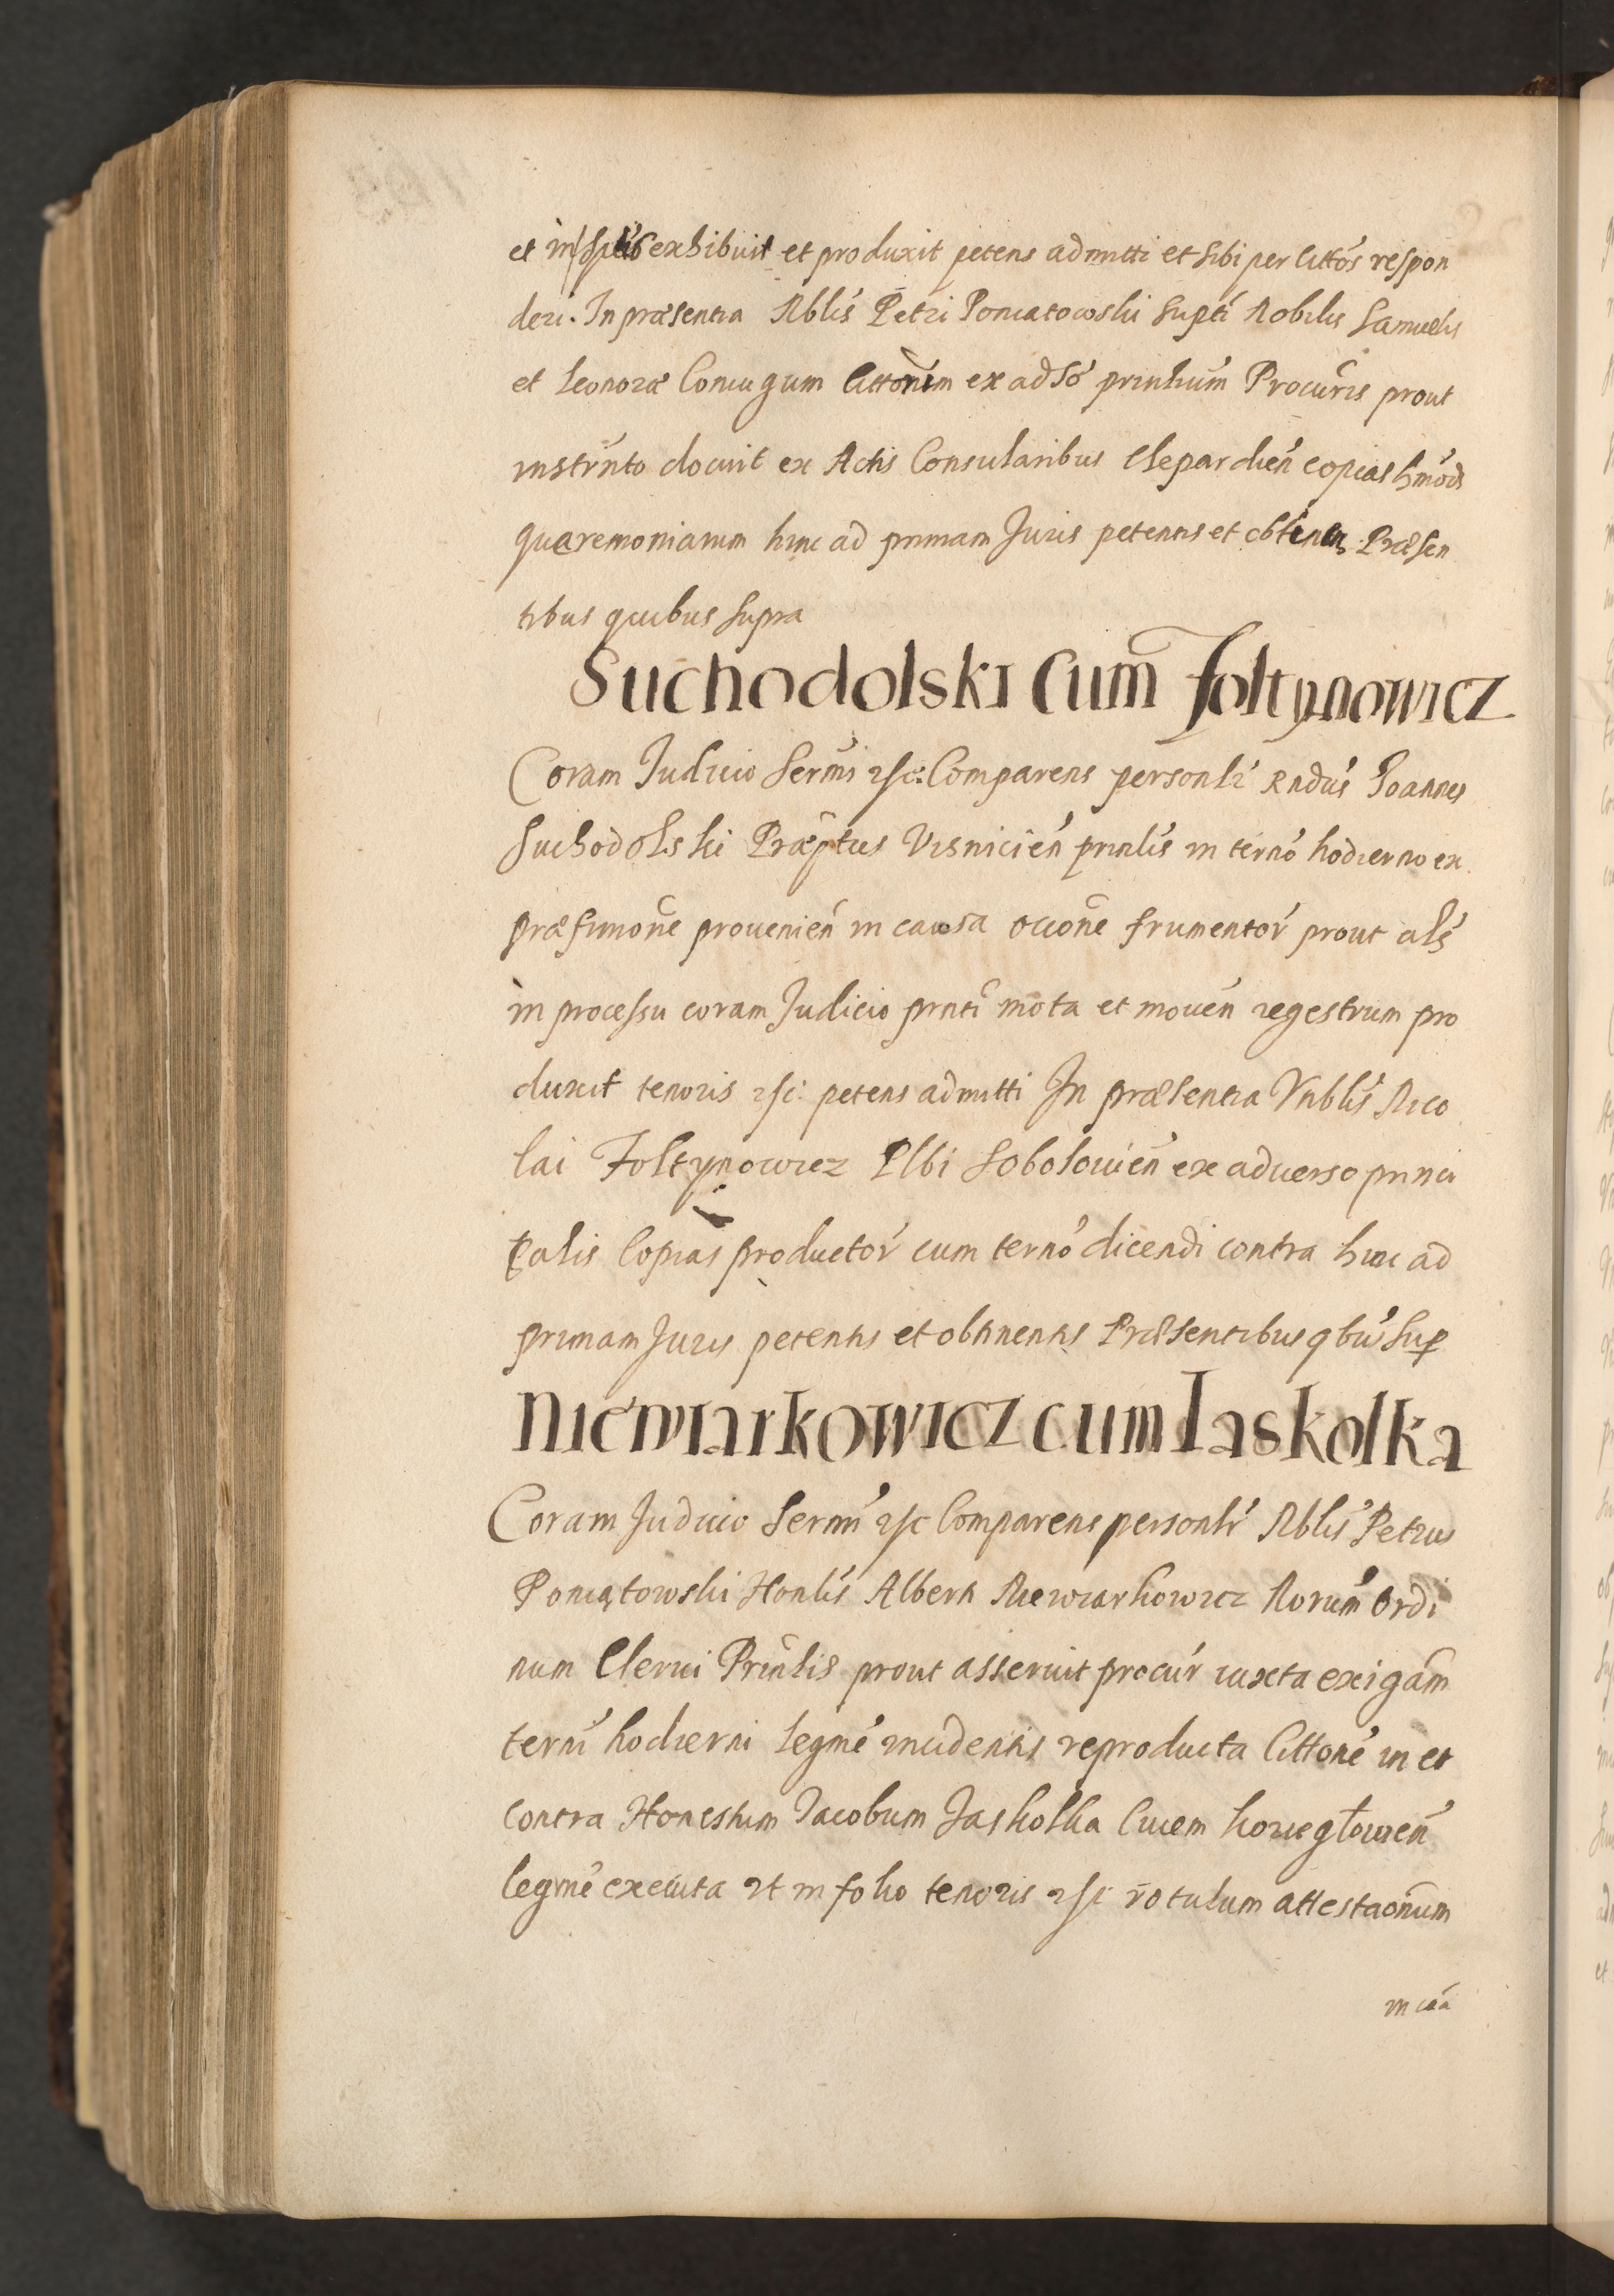 et in scptis exhibuit et produxit petens admitti et sibi per citos respon
deri. In præsentia Nblis Petri Poniatowski supti Nobilis Samuelis
et Leonoræ Coniugum Cittorum ex adso prinlium Procuris prout
instrmto docuit ex Actis Consularibus Clepardien copias hmodi
quæremoniarum hinc ad primam Juris petentis et obtinen Præsen
tibus quibus supra
Suchodolski cum Foltynowicz
Coram Judicio Sermi etc: Comparens personlr Rndus Joannes
Suchodolski Præptus Visnicien prinlis in terno hodierno ex
præfixione provenien in causa occone frumentor prout als
in processu coram Judicio prnti mota et moven regestrum pro
duxit tenoris etc: petens admitti In præsentia Vnblis Nico
lai Foltynowicz Plbi Sobolovien ex adverso princi
palis Copias productor cum terno dicendi contra hinc ad
primam Juris petentis et obtinentis Præsentibus qbus sup
Niewiarkowicz cum Iaskolka
Coram Judicio Sermi etc Comparens personlr Nblis Petrus
Poniatowski Honlis Alberti Niewiarkowicz Norum Ordi
num Clerici Prinlis prout asseruit procur iuxta exigam
terni hodierni legme incidentis reproducta Cittone in et
contra Honestum Jacobum Jaskolka Civem Kozieglowien
legme executa et in folio tenoris etc rotulum attestaonum
in caa